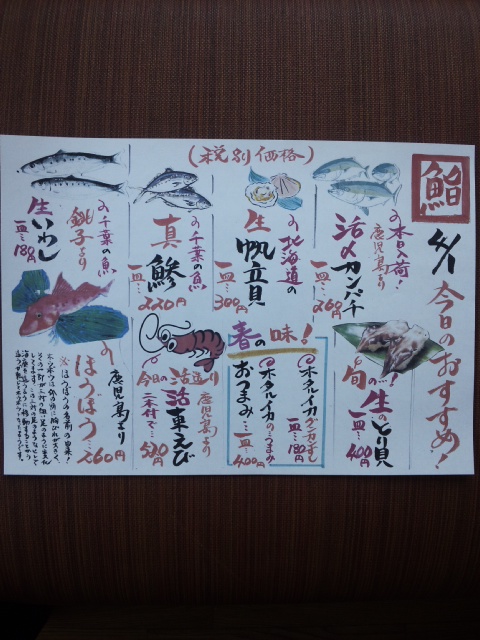 鮨
今日のおすすめ!
(税別価格)
本日入荷!
鹿児島より
活〆カンパチ
一皿…260円
北海道の
生帆立貝
一皿…300円
千葉の魚
真鯵
一皿…220円
千葉の魚
銚子より
生いわし
一皿…180円
旬の…!
生のとり貝
一皿…400円
春の味!
ホタルイカグンカンずし
一皿…180円
ホタルイカのうまみ
おつまみ…一皿…400円
今日の活造り
鹿児島より
活車えび
二本付で…520円
鹿児島より
ほうぼう…260円
ほうぼうの名前の由来!